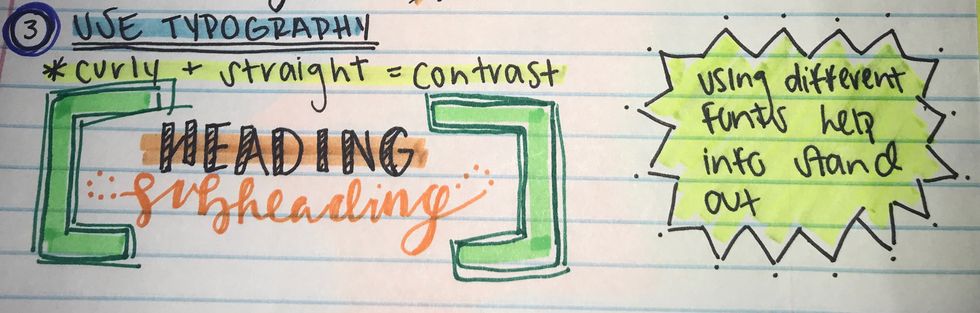 3 USE TYPOGRAPHY
* curly + straight = contrast
HEADING
subheading
using different
fonts help
info stand
out